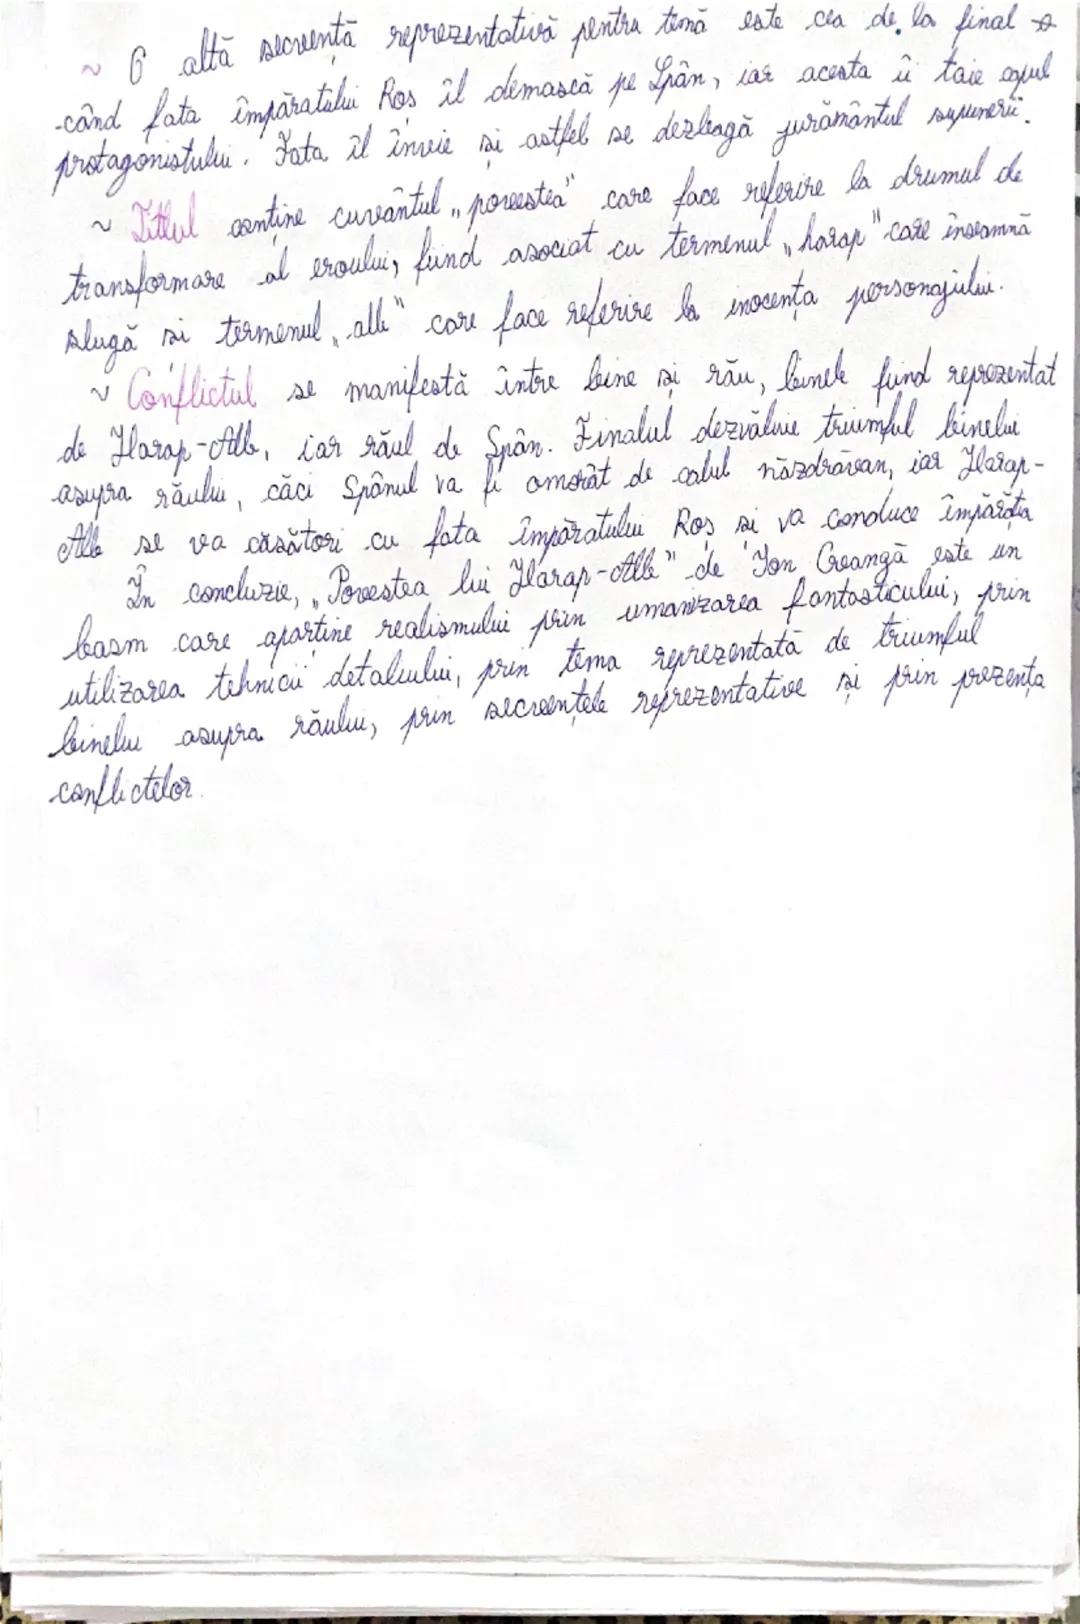 ~ O altă secvență reprezentativă pentru temă este cea de la final
când fata împăratului Roș îl demască pe Spân, iar acesta îi taie capul
protagonistului. Fata îl învie și astfel se dezleagă jurământul supunerii.
~ Titlul conține cuvântul „povestea" care face referire la drumul de
transformare al eroului, fiind asociat cu termenul „harap" care înseamnă
slugă și termenul „alb" care face referire la inocența personajului.
~ Conflictul se manifestă între bine și rău, binele fiind reprezentat
de Harap-Alb, iar răul de Spân. Finalul dezvăluie triumful binelui
asupra răului, căci Spânul va fi omorât de calul năzdrăvan, iar Harap-
Alb se va căsători cu fata împăratului Roș și va conduce împărăția
În concluzie, „Povestea lui Harap-Alb" de Ion Creangă este un
basm care aparține realismului prin umanizarea fantasticului, prin
utilizarea tehnicii detaliului, prin tema reprezentată de triumful
binelui asupra răului, prin secvențele reprezentative și prin prezența
conflictelor.